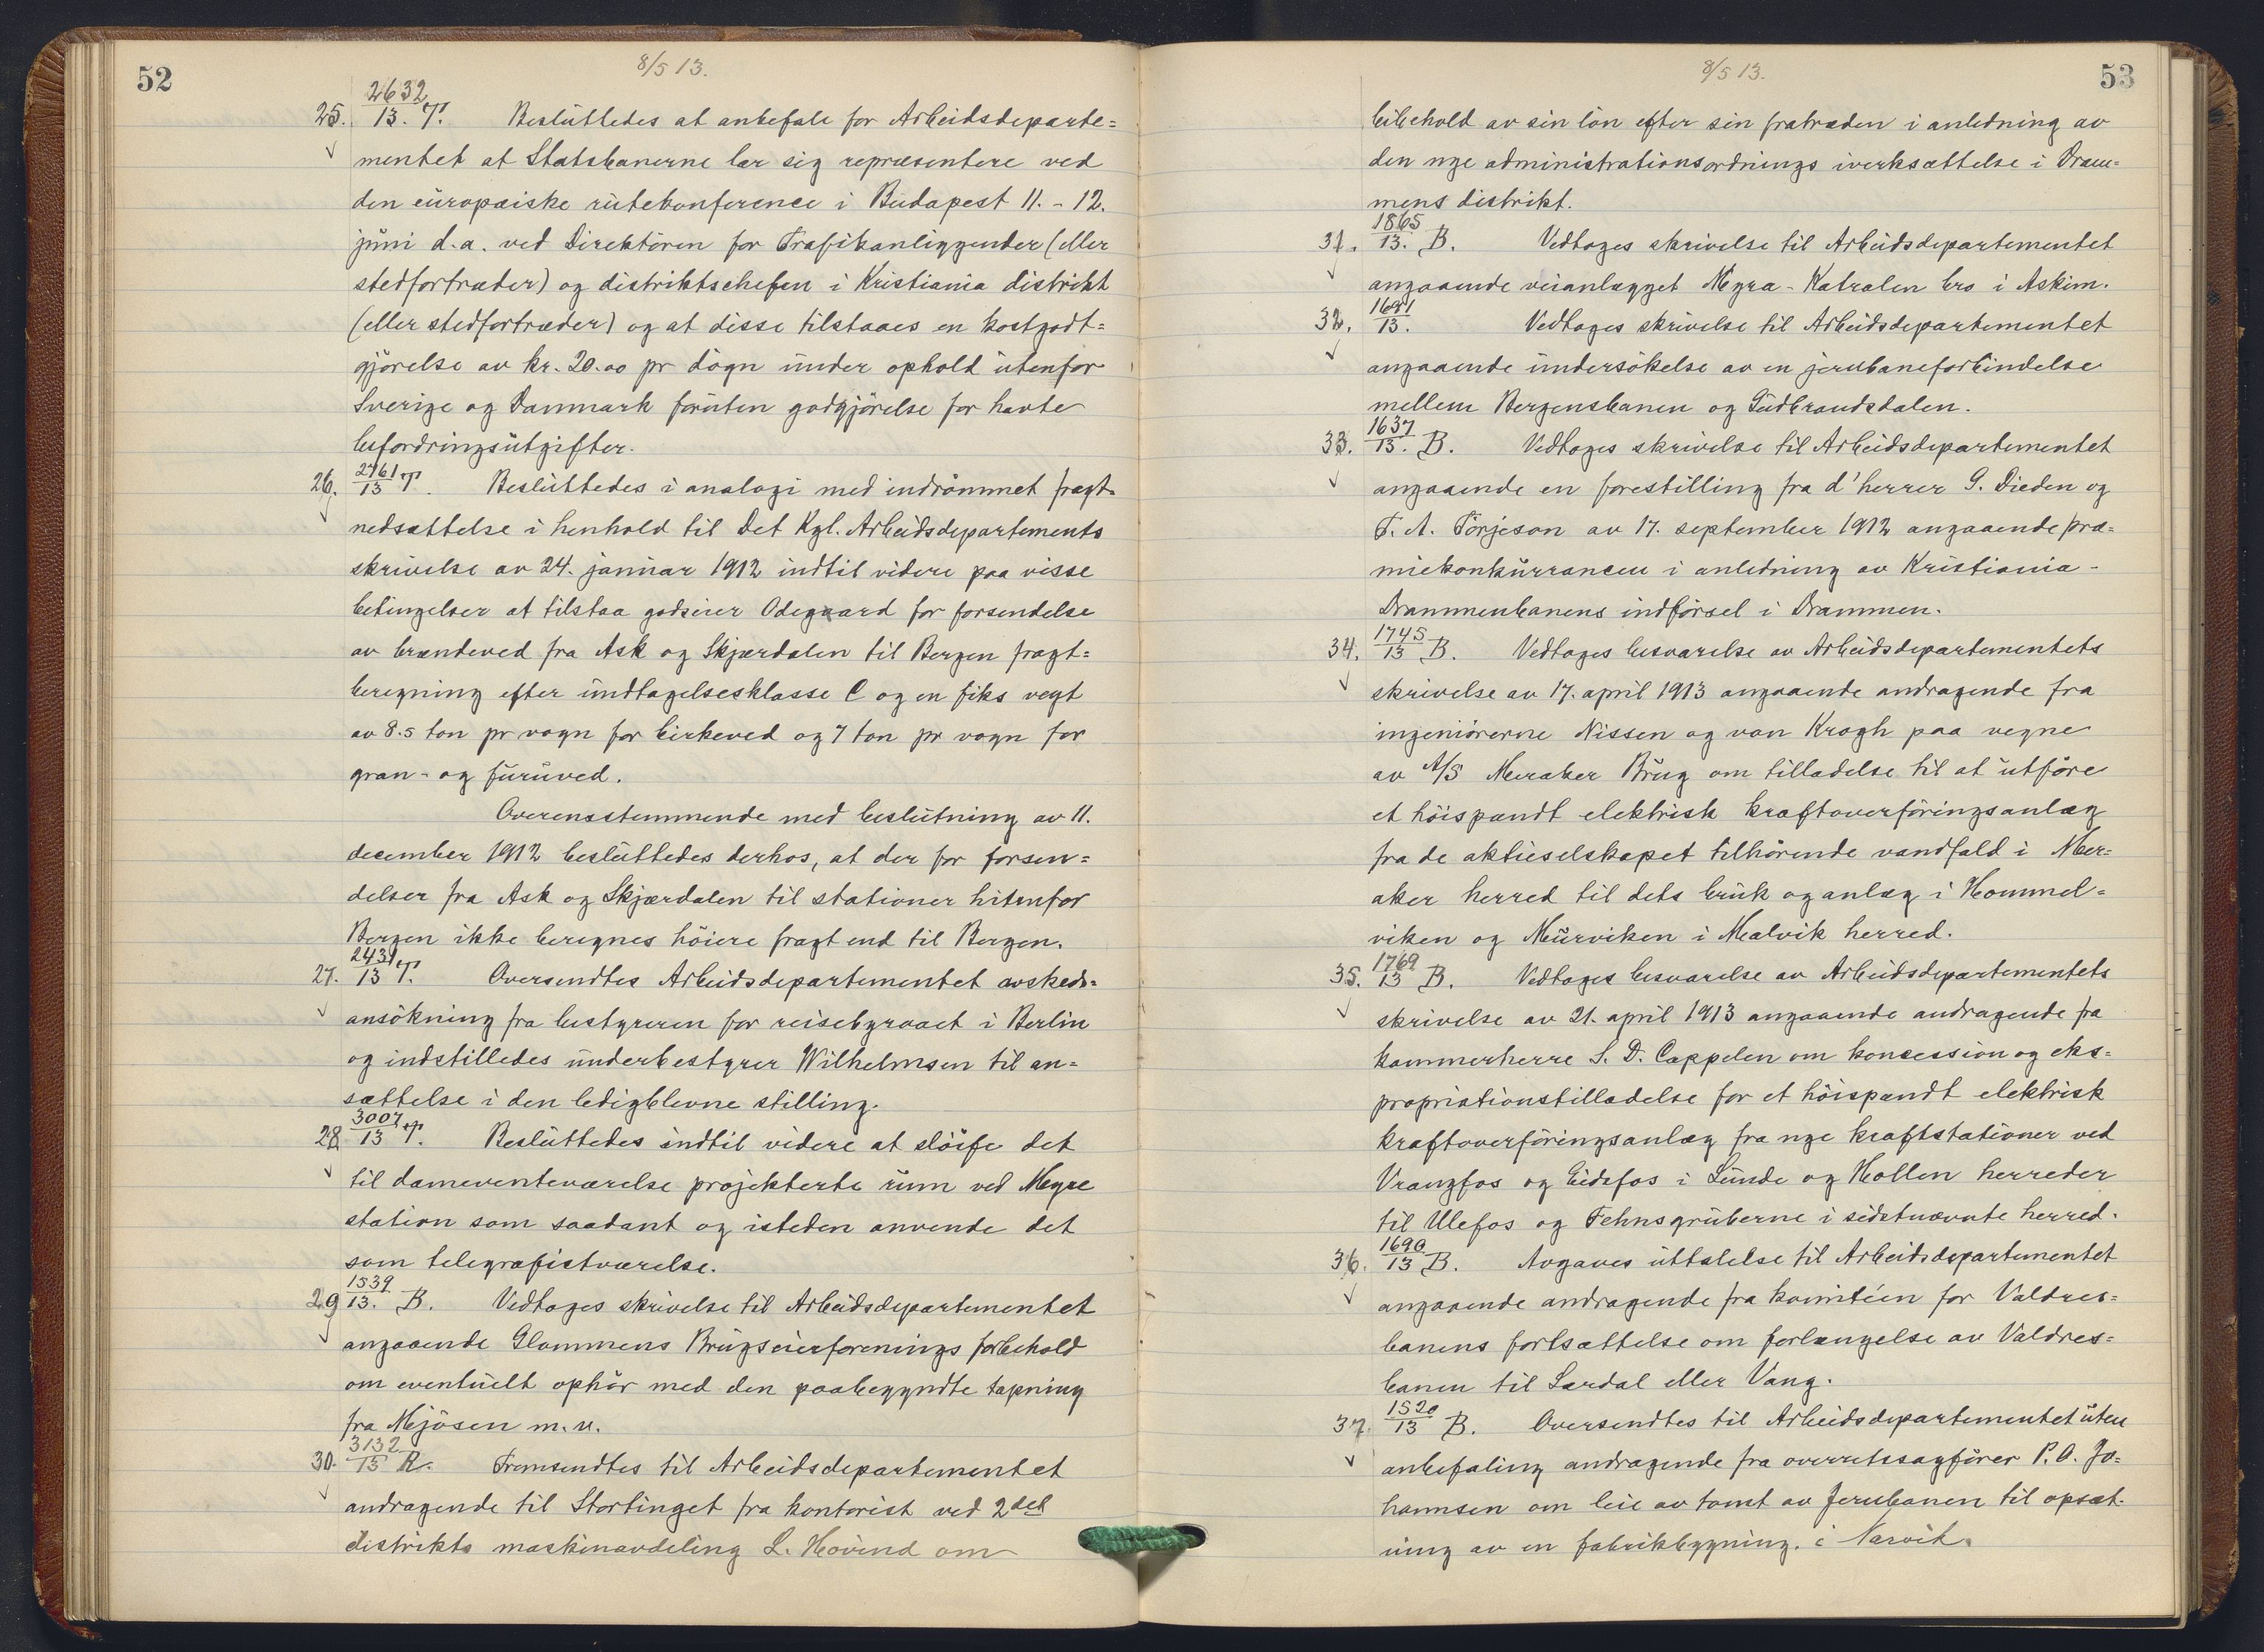 52
8/5 13.
2632
25. 13. T. Besluttedes at anbefale for Arbeidsdeparte=
mentet at Statsbanerne lar sig repræsentere ved
den europæiske rutekonference i Budapest 11. - 12.
juni d.a. ved Direktören for Trafikanliggender (eller
stedfortræder) og distriktschefen i Kristiania distrikt
(eller stedfortræder) og at disse tilstaaes en kostgodt=
gjörelse av kr. 20.00 pr dögn under ophold utenfor
Sverige og Danmark foruten godgjörelse for havte
befordringsutgifter.
2761
26. 13 T. Besluttedes i analogi med indrömmet fragt-
nedsættelse i henhold til Det Kgl. Arbeidsdepartements
skrivelse av 24. januar 1912 indtil videre paa visse
betingelser at tilstaa godseier Odegaard for forsendelse
av brændeved fra Ask og Skjærdalen til Bergen fragt=
beregning efter undtagelsesklasse C og en fiks vegt
av 8.5 ton pr vogn for birkeved og 7 ton pr vogn for
gran- og furuved.
Overensstemmende med beslutning av 11.
december 1912 besluttedes derhos, at der for forsen=
delser fra Ask og Skjærdalen til stationer hitenfor
Bergen ikke beregnes höiere fragt end til Bergen.
2431
27. 13 T. Oversendtes Arbeidsdepartementet avskeds=
ansökning fra bestyreren for reisebyraaet i Berlin
og indstilledes underbestyrer Wilhelmsen til an=
sættelse i den ledigblevne stilling.
3007
28 13 T. Besluttedes indtil videre at slöife det
til dameventeværelse projekterte rum ved Myre
station som saadant og isteden anvende det
som telegrafistværelse.
1539
29 13. B. Vedtoges skrivelse til Arbeidsdepartementet
angaaende Glommens Brugseierforenings forbehold
om eventuelt ophör med den paabegyndte tapning
fra Mjösen m.v.
3132
30. 13 R. Fremsendtes til Arbeidsdepartementet
andragende til Stortinget fra kontorist ved 2det
distrikts maskinavdeling L. Hovind om
8/5 13.
53
bibehold av sin lön efter sin fratræden i anledning av
den nye administrationsordnings iverksættelse i Dram=
mens distrikt.
1865
31. 13. B. Vedtoges skrivelse til Arbeidsdepartementet
angaaende veianlægget Myra - Katralen bro i Askim.
1691
32. 13. Vedtoges skrivelse til Arbeidsdepartementet
angaaende undersökelse av en jernbaneforbindelse
mellem Bergensbanen og Gudbrandsdalen.
1637
33. 13. B. Vedtoges skrivelse til Arbeidsdepartementet
angaaende en forestilling fra d'herrer G. Dieden og
T. A. Torjeson av 17. september 1912 angaaende præ=
miekonkurrancen i anledning av Kristiania-
Drammenbanens indförsel i Drammen.
1745
34. 13 B. Vedtoges besvarelse av Arbeidsdepartementets
skrivelse av 17. april 1913 angaaende andragende fra
ingeniörerne Nissen og van Krogh paa vegne
av A/S Meraker Brug om tilladelse til at utföre
et höispændt elektrisk kraftoverföringsanlæg
fra de aktieselskapet tilhörende vandfald i Mer=
aker herred til dets bruk og anlæg i Hommel=
viken og Muruviken i Malvik herred.
1769
35. 13 B. Vedtoges besvarelse av Arbeidsdepartementets
skrivelse av 21. april 1913 angaaende andragende fra
kammerherre S. D. Cappelen om koncession og eks=
propriationstilladelse for et höispændt elektrisk
kraftoverföringsanlæg fra nye kraftstationer ved
Vrangfos og Eidsfos i Lunde og Hollen herreder
til Ulefos og Fehnsgruberne i sidstnævnte herred.
1690
36. 13 B. Avgaves uttalelse til Arbeidsdepartementet
angaaende andragende fra komitéen for Valdres=
banens fortsættelse om forlængelse av Valdres=
banen til Lærdal eller Vang.
1520
37. 13 B. Oversendtes til Arbeidsdepartementet uten
anbefaling andragende fra overretssagförer P. O. Jo=
hannsen om leie av tomt av Jernbanen til opsæt-
ning av en fabrikbygning. i Narvik.